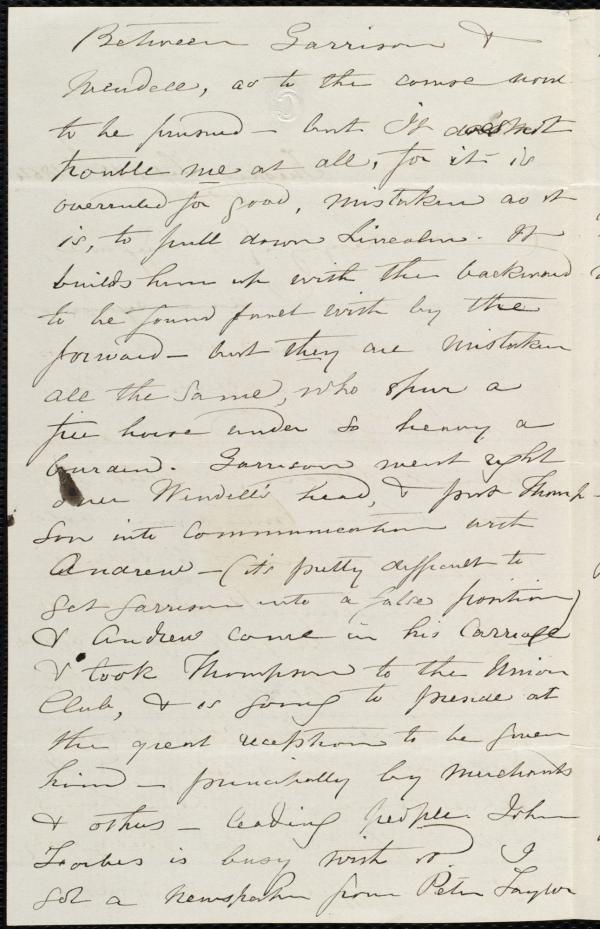 Between Garrison &
Wendell, as to the course now
to be pursued – but it does not
trouble me at all, for it is
overruled for good, mistaken as it
is, to pull down Lincoln. It
builds him up with the backward
to be found fault with by the
forward – but they are mistaken
all the same, who spur a
free horse under so heavy a
burden. Garrison went right
over Wendell's head, & put Thomp-
son into communication with
Andrew – (it's pretty difficult to
get Garrison into a false position)
& Andrew came in his carriage
& took Thompson to the Union
Club, & is going to preside at
the great reception to be given
him – principally by merchants
& others – leading people. John
Forbes is busy with it. I
got a newspaper from Peter Taylor